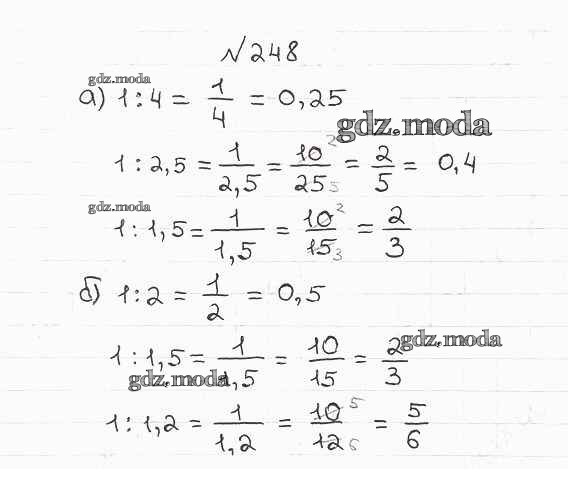 №248
gdz.moda
а) 1:4 = 1/4 = 0,25
gdz.moda
1 : 2,5 = 1/2,5 = 10 2/25 5 = 2/5 = 0,4
gdz.moda
1 : 1,5 = 1/1,5 = 10 2/15 3 = 2/3
б) 1:2 = 1/2 = 0,5
1 : 1,5 = 1/1,5 = 10/15 = 2/3
gdz.moda
gdz.moda
1 : 1,2 = 1/1,2 = 10 5/12 6 = 5/6